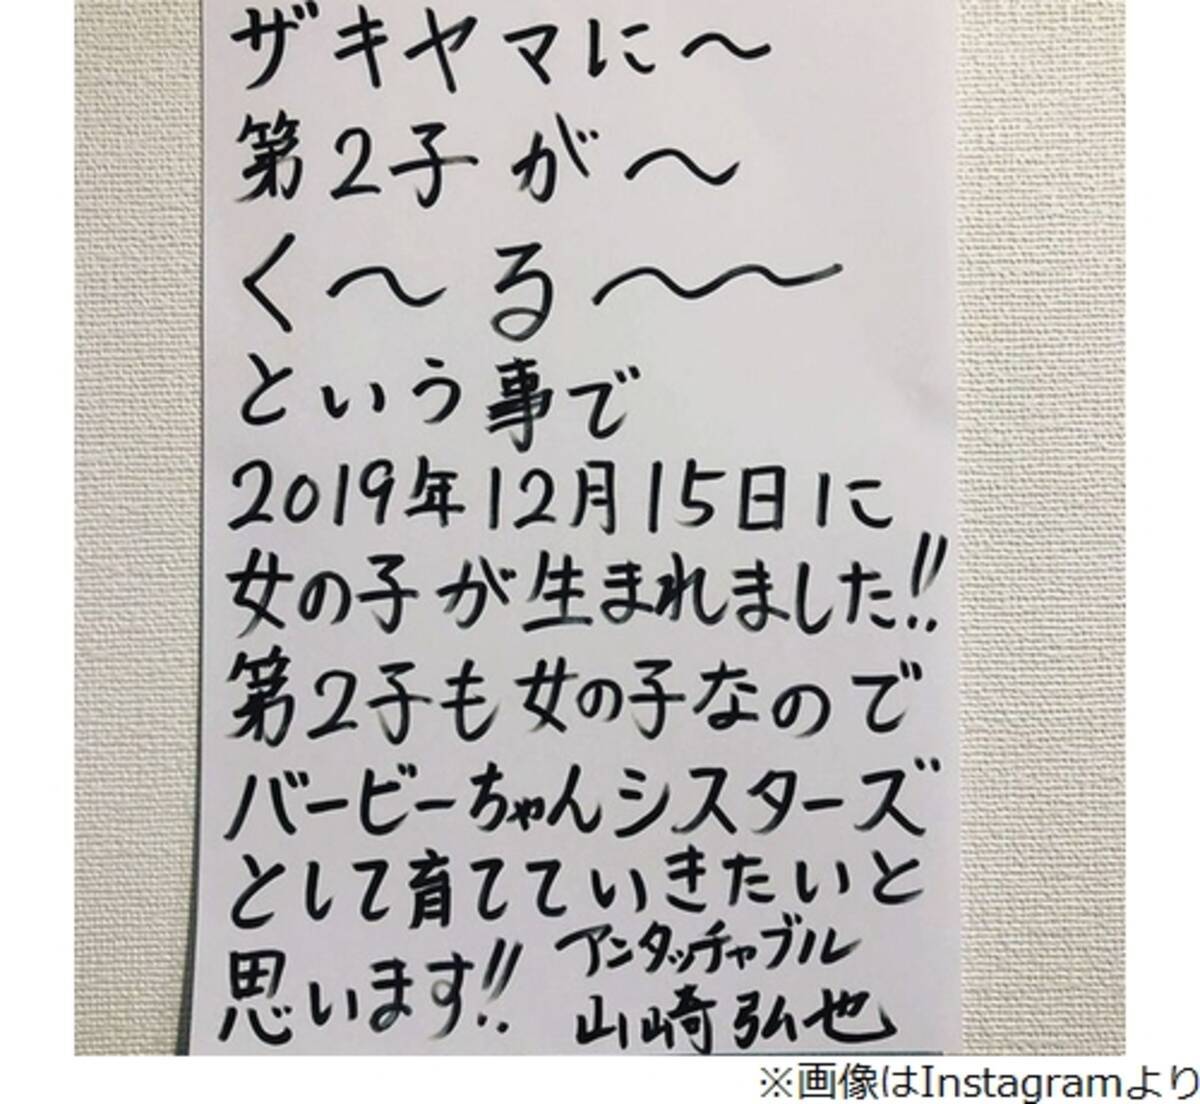 ザキヤマに〜
第2子が〜
く〜る〜〜
という事で
2019年12月15日に
女の子が生まれました!!
第2子も女の子なので
バービーちゃんシスターズ
として育てていきたいと
思います!!
アンタッチャブル
山崎弘也
※画像はInstagramより